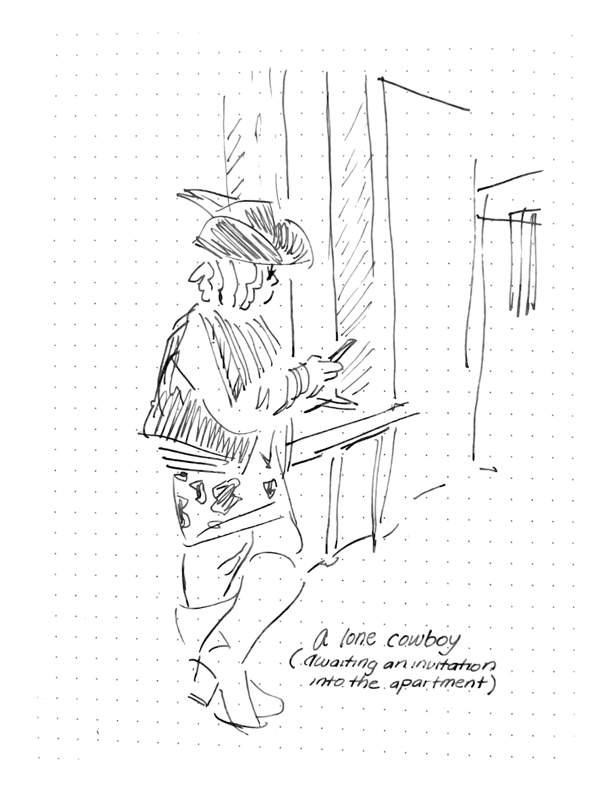 a lone cowboy
(awaiting an invitation
into the apartment)